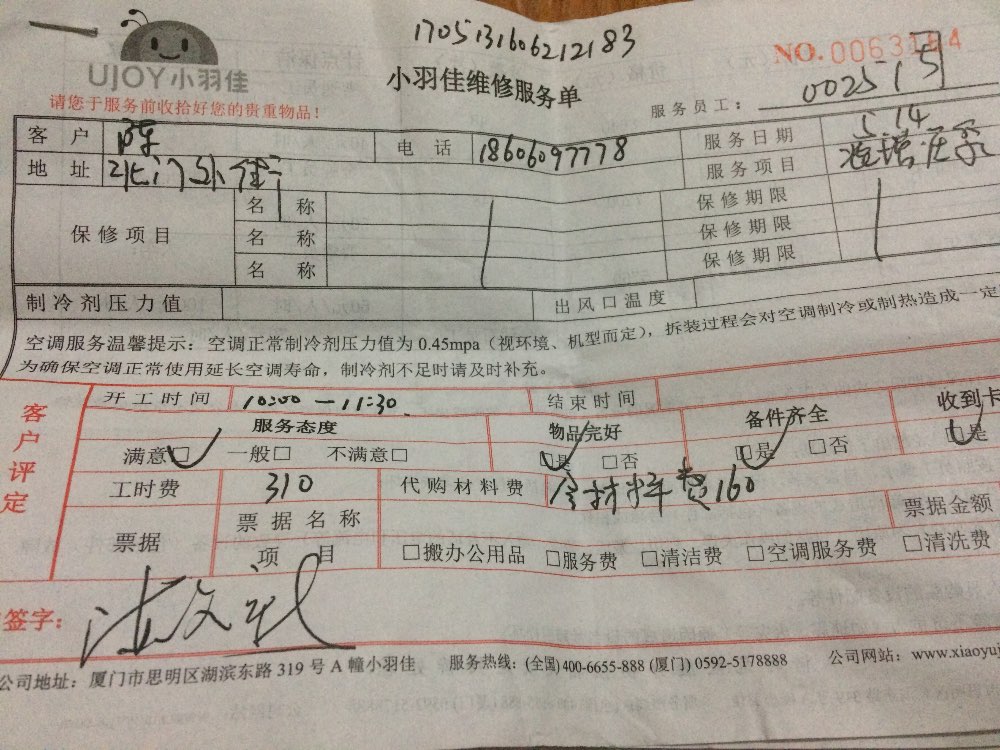 1705131606212183
NO. 0063184
UJOY小羽佳
小羽佳维修服务单
服务员工：00251
请您于服务前收拾好您的贵重物品！
客户 陈 电话 18606097778 服务日期 5.14
地址 服务项目
保修项目 名称 保修期限
名称 保修期限
名称 保修期限
制冷剂压力值 出风口温度
空调服务温馨提示：空调正常制冷剂压力值为 0.45mpa（视环境、机型而定），拆装过程会对空调制冷或制热造成一定
为确保空调正常使用延长空调寿命，制冷剂不足时请及时补充。
客户评定
开工时间 10:00—11:30 结束时间
服务态度 物品完好 备件齐全 收到卡
满意□ 一般□ 不满意□ □是 □否 □是 □否 □是
工时费 310 代购材料费 含材料费160
票据 票据名称 票据金额
项目 □搬办公用品 □服务费 □清洁费 □空调服务费 □清洗费
签字：
公司地址：厦门市思明区湖滨东路 319 号 A 幢小羽佳 服务热线：(全国) 400-6655-888 (厦门) 0592-5178888 公司网站：www.xiaoyuj